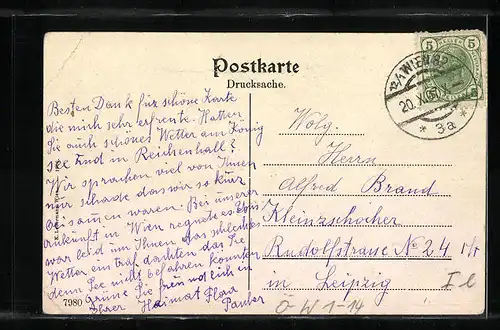 Postkarte
Drucksache.
Besten Dank für schöne Karte
die mich sehr erfreute. Hatten
Sie auch schönes Wetter am König
see und in Reichenhall?
Wir sprachen viel von Ihnen
nur schade das wir so kurz
beisammen waren. Bei unserer
Ankunft in Wien regnete es
war leid um Ihnen das
Wetter ein traf dachten das Sie
denn See nicht befahren konnten
Grüsse Sie
Ihrer Heimat
7980
5 5
12/1 WIEN
20. X
* 3a *
Wolg.
Herrn
Alfred Brand
Kleinzschocher
Rudolfstrasse No 24
in Leipzig
Ö-W 1-14